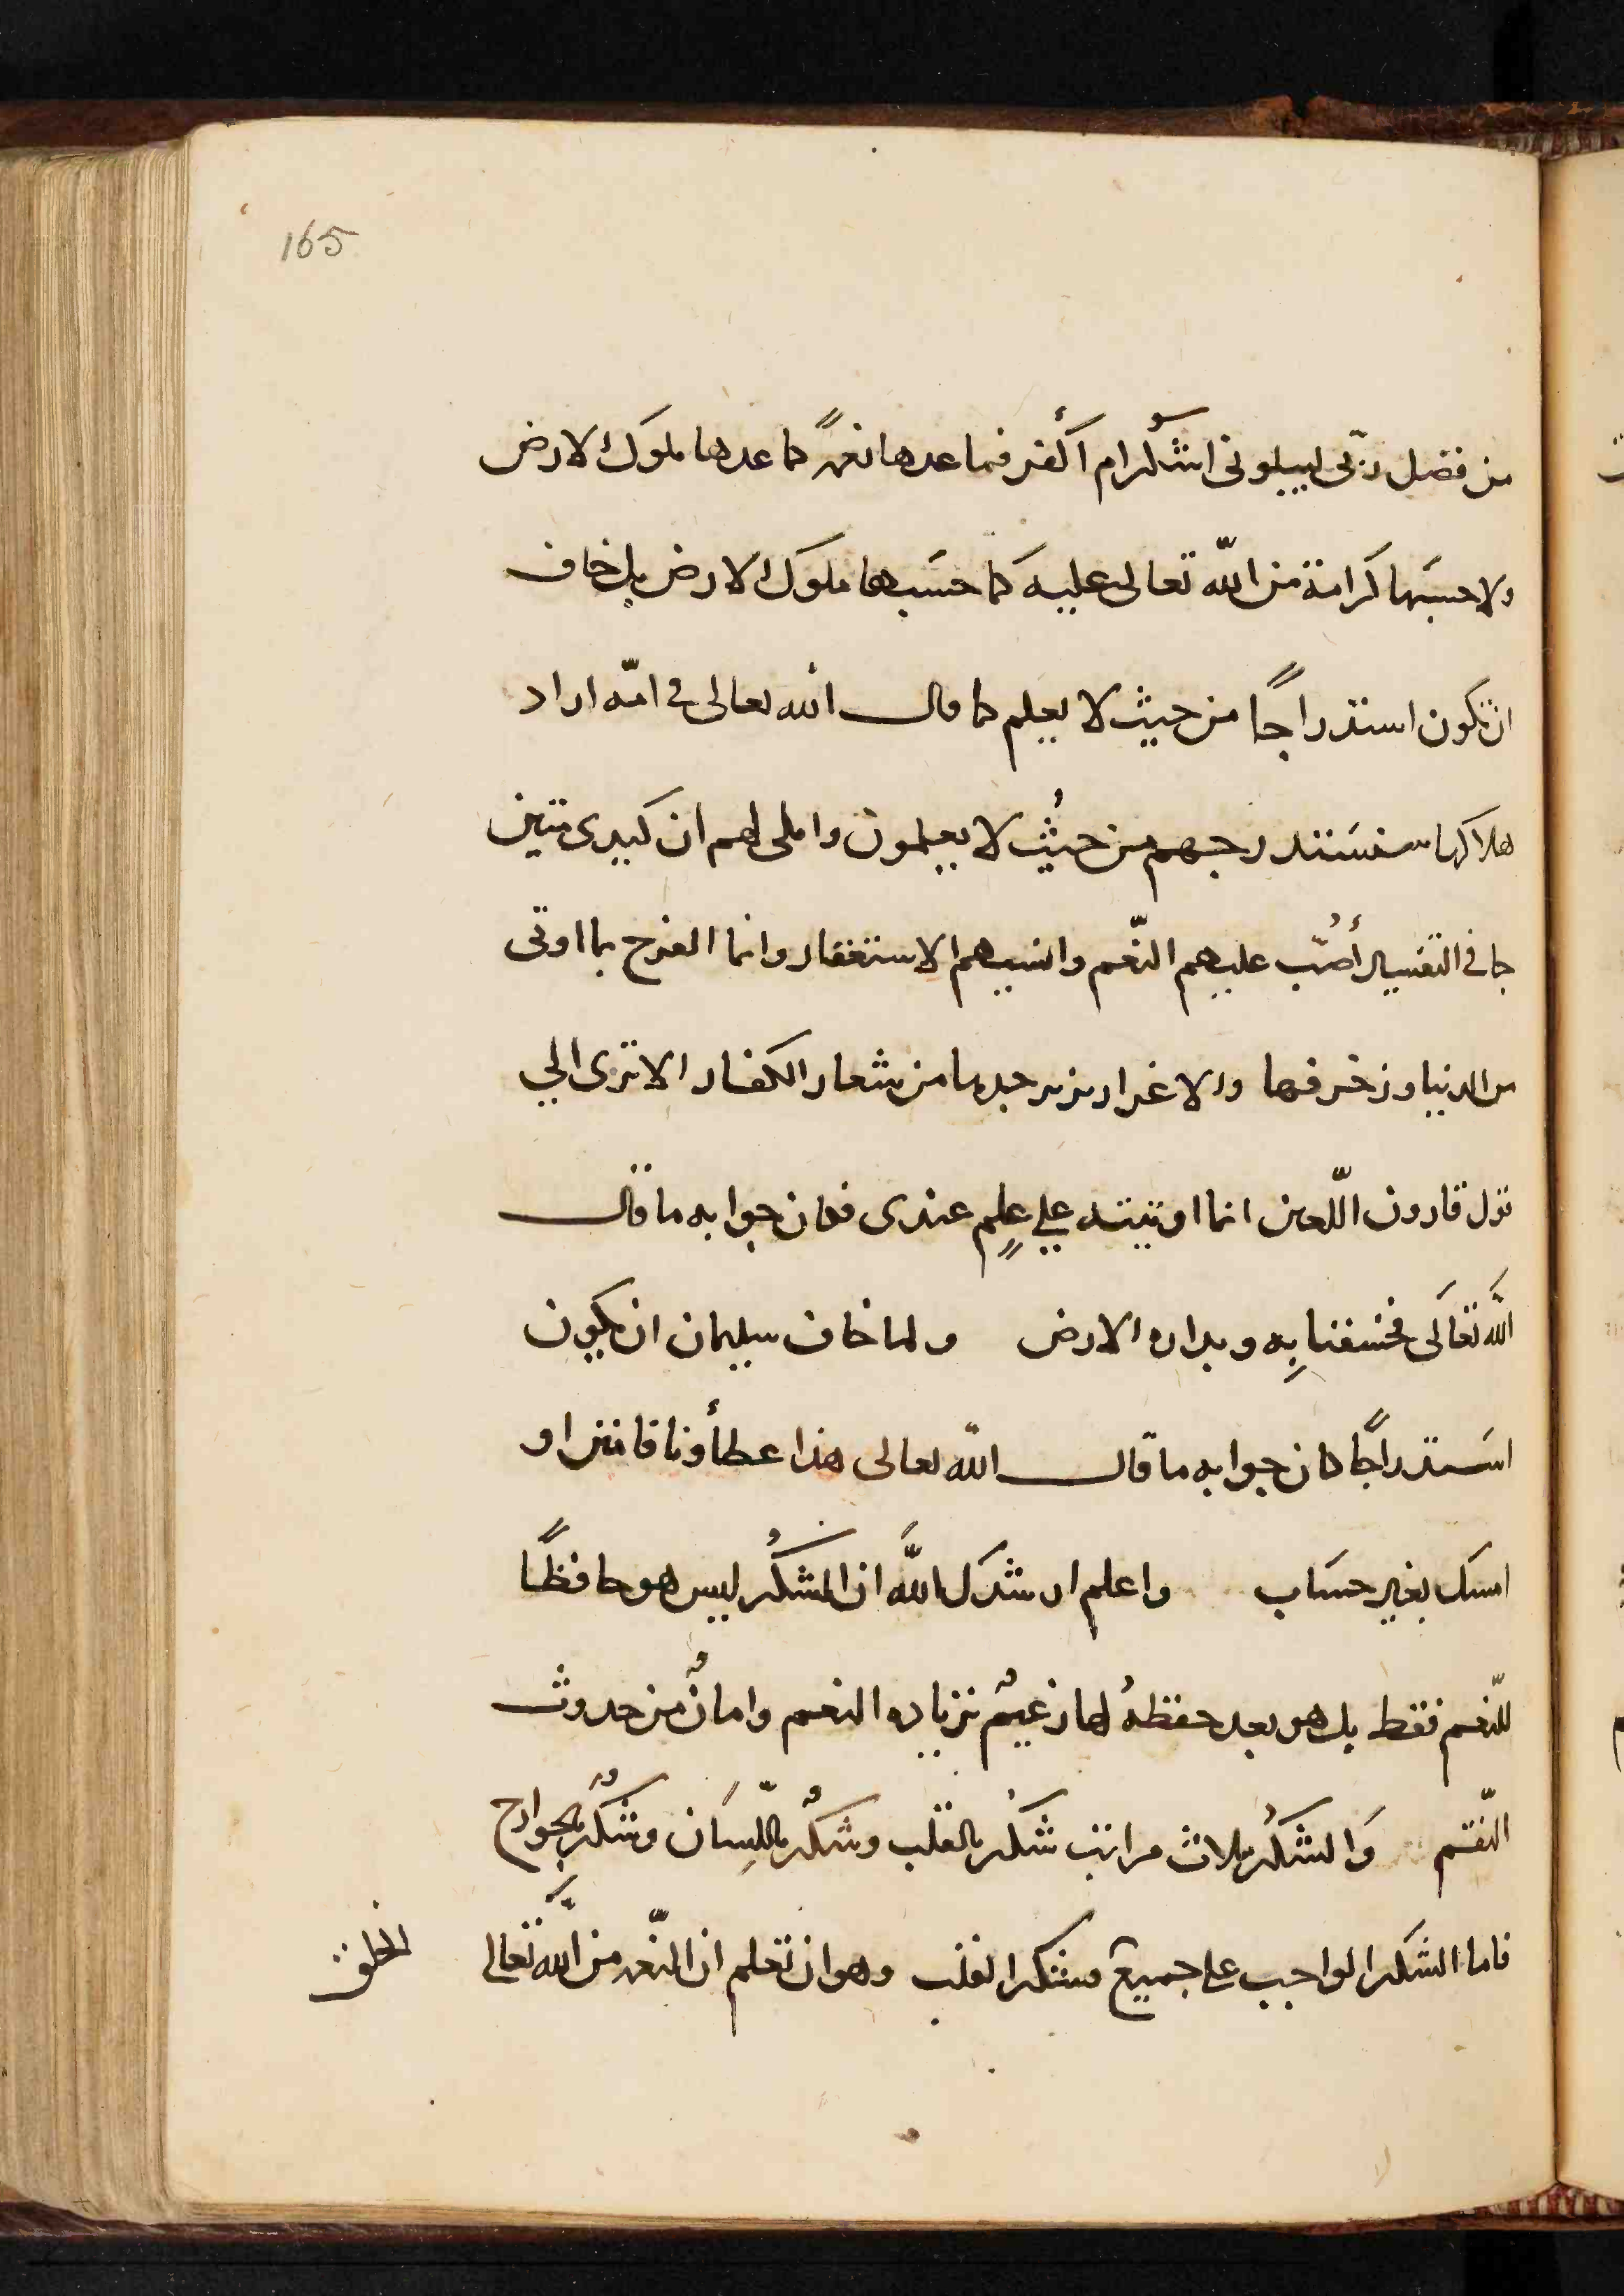 165
من فضل ربّى ليبلونى اشكرام أكفر فما عدها نعمةً كما عدها ملوك الارض
ولا حسبَها كرامة من اللّه تعالى عليه كما حسَبها ملوك الارض بل خاف
ان تكون استدراجًا من حيث لا يعلم كما قال الله تعالى فى امّه اراد
هلاكها سنسَتدرجهم من حيثُ لا يعلمون واملى لهم ان كيدى متين
جا فى التفسير أصُبّ عليهم النّعم وانسيهم الاستغفار وانما الفرح بما اوتى
من الدنيا وزخرفها والاغرار بزبرجدها من شعار الكفار الا ترى الي
قول قارون اللّعين انما اوتيته علي علمٍ عندى فكان جوابه ما قال
اللَّه تعَالَى فخسفنا بِه وبداره الارض ولما خاف سليمان ان يكون
اسَتدراجًا كان جوابه ما قال اللّه تعالى هذا عطأونا فامنن او
امسك بغير حسَاب واعلم ارشدك اللَّه ان الشكُر ليس هو حافظًا
للنّعم فقط بل هو بعد حفظهُ لها زعيمٌ بزياده النعم وامانٌ من حدوث
النّقم وَالشكُر ثلاث مراتب شكر بالقلب وشكرٌ باللّسَان وشكرٌ بالجوارح
فاما الشكر الواجب على جميع فشكر القلب وهو ان تعلم ان النّعمه من اللَّه تعالى
الخلق